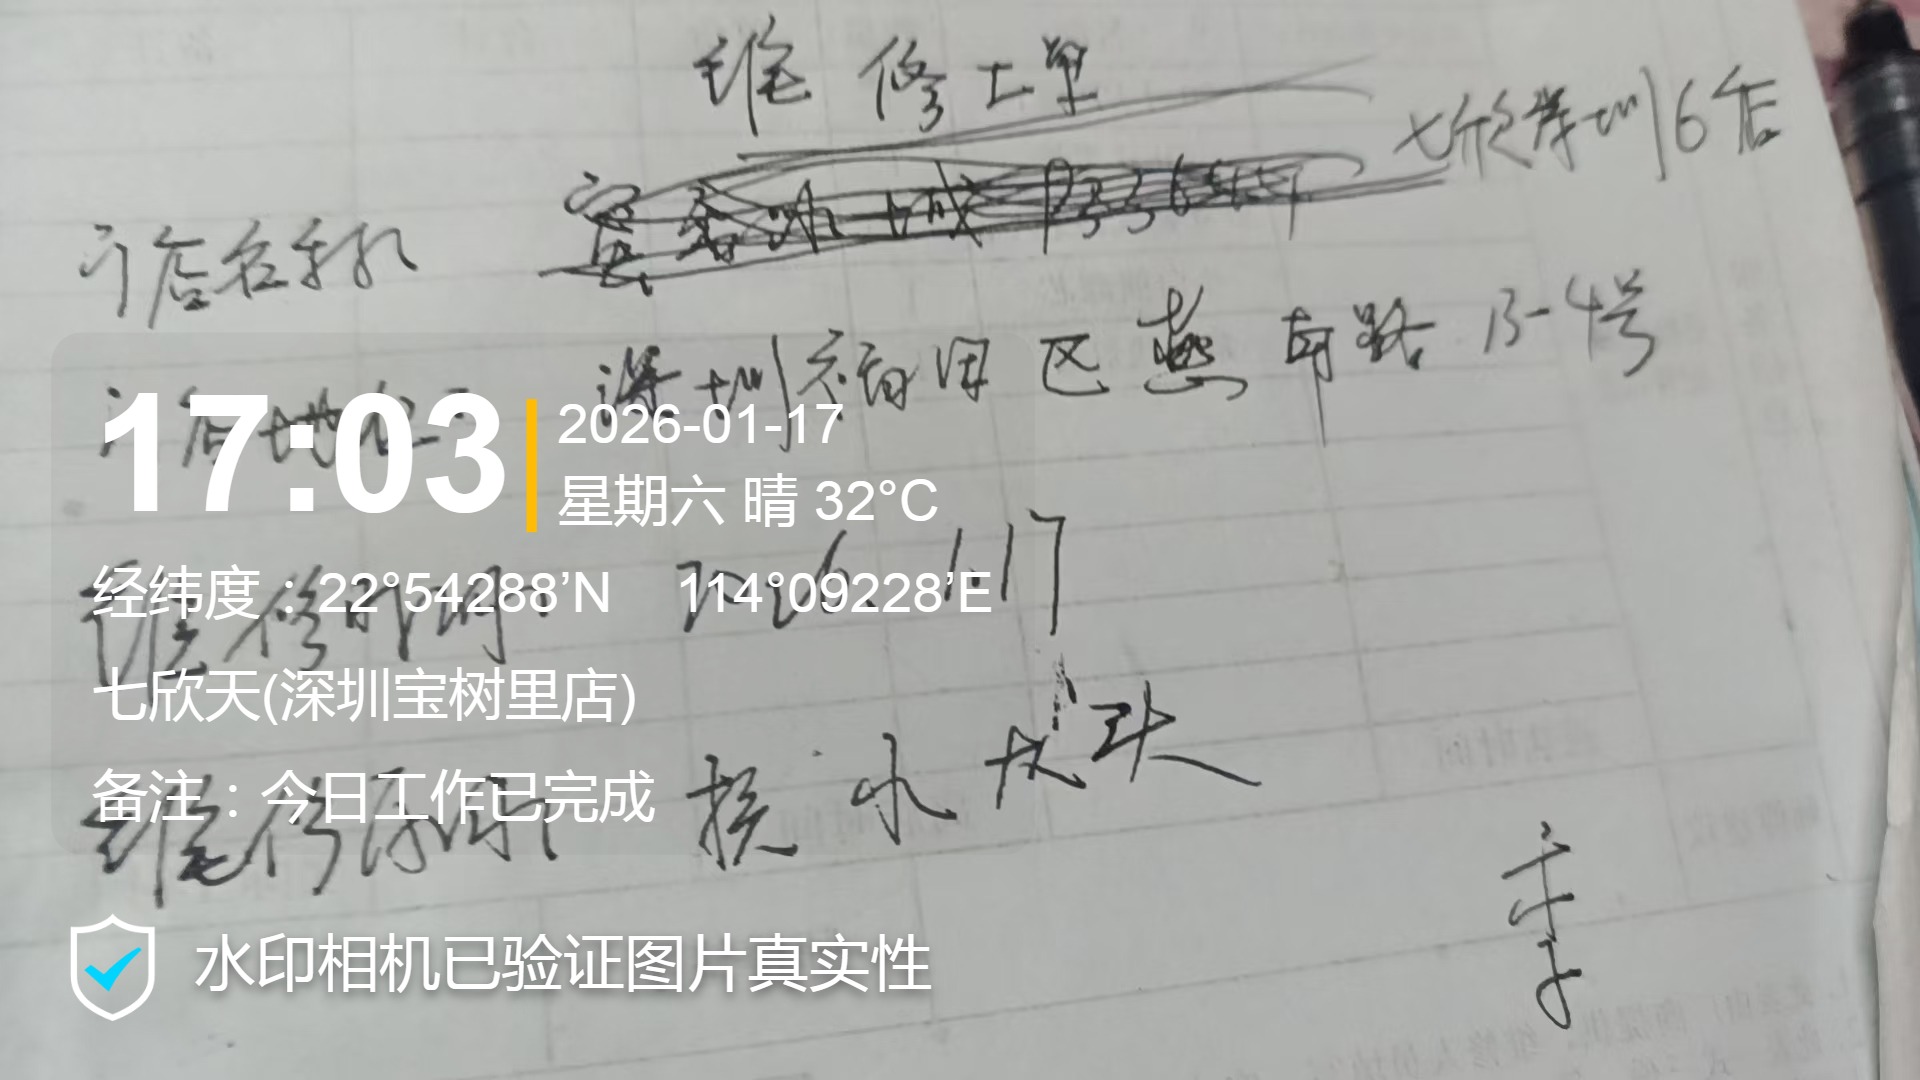 维修工单
七欣深圳6店
门店名称
深圳福田区燕南路13-4号
门店地址:
17:03
2026-01-17
星期六 晴 32°C
维修时间: 2026.1.17
经纬度：22°54288’N 114°09228’E
七欣天(深圳宝树里店)
维修原因: 换水龙头
备注：今日工作已完成
水印相机已验证图片真实性